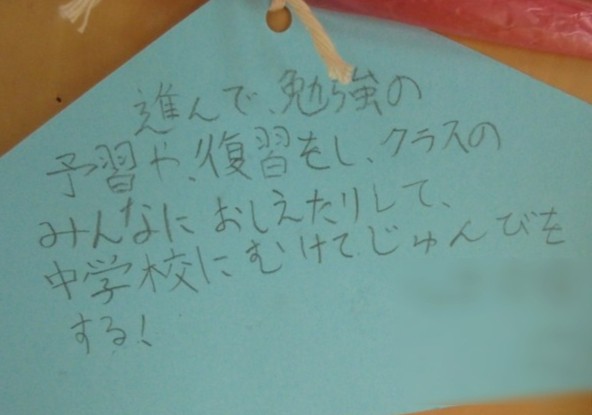 進んで、勉強の
予習や、復習をし、クラスの
みんなに おしえたりして、
中学校にむけて、じゅんびを
する!